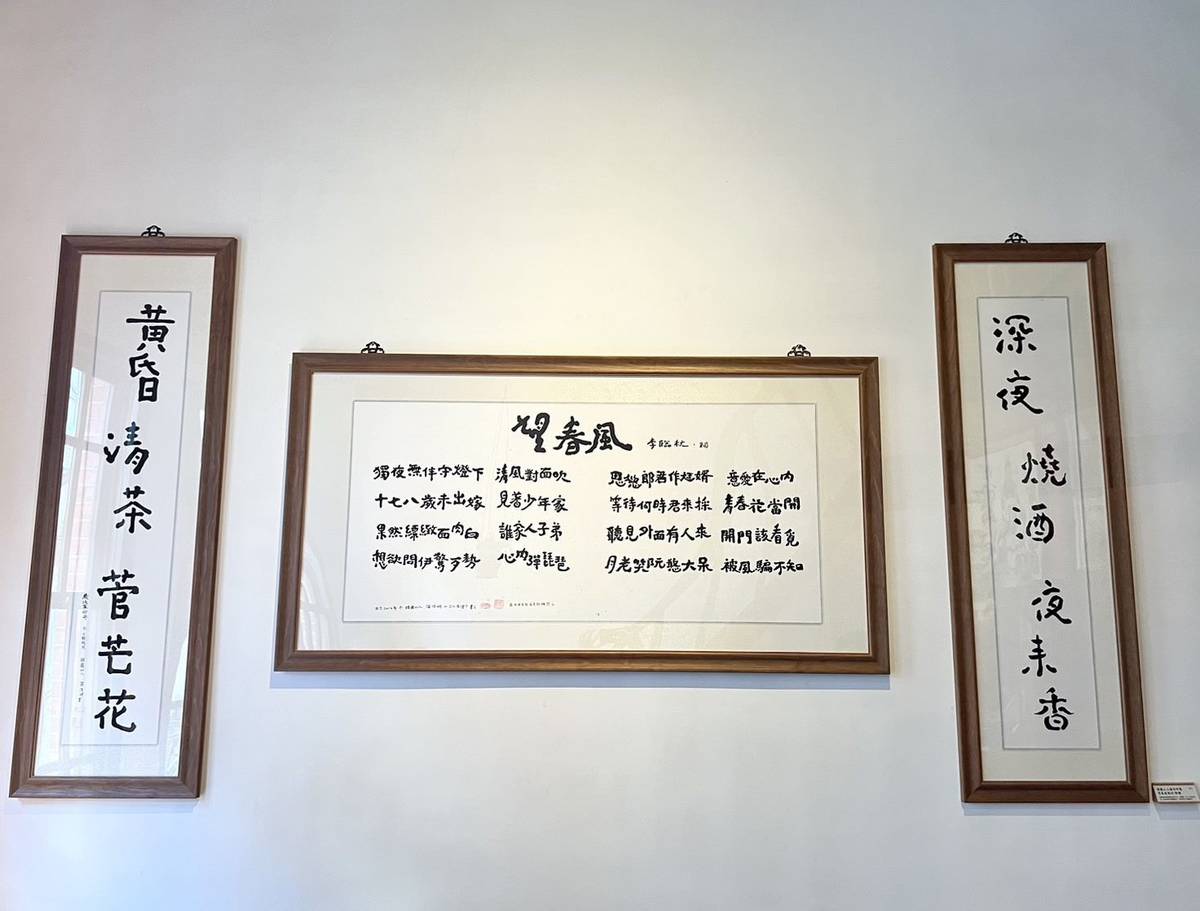 黃昏 清茶 菅芒花
望春風 李臨秋·詞
獨夜無伴守燈下 清風對面吹
十七八歲未出嫁 見著少年家
果然縹緻面肉白 誰家人子弟
想欲問伊驚歹勢 心內彈琵琶
思慾郎君作尪婿 意愛在心內
等待何時君來採 青春花當開
聽見外面有人來 開門該看覓
月老笑阮憨大呆 被風騙不知
深夜 燒酒 夜來香